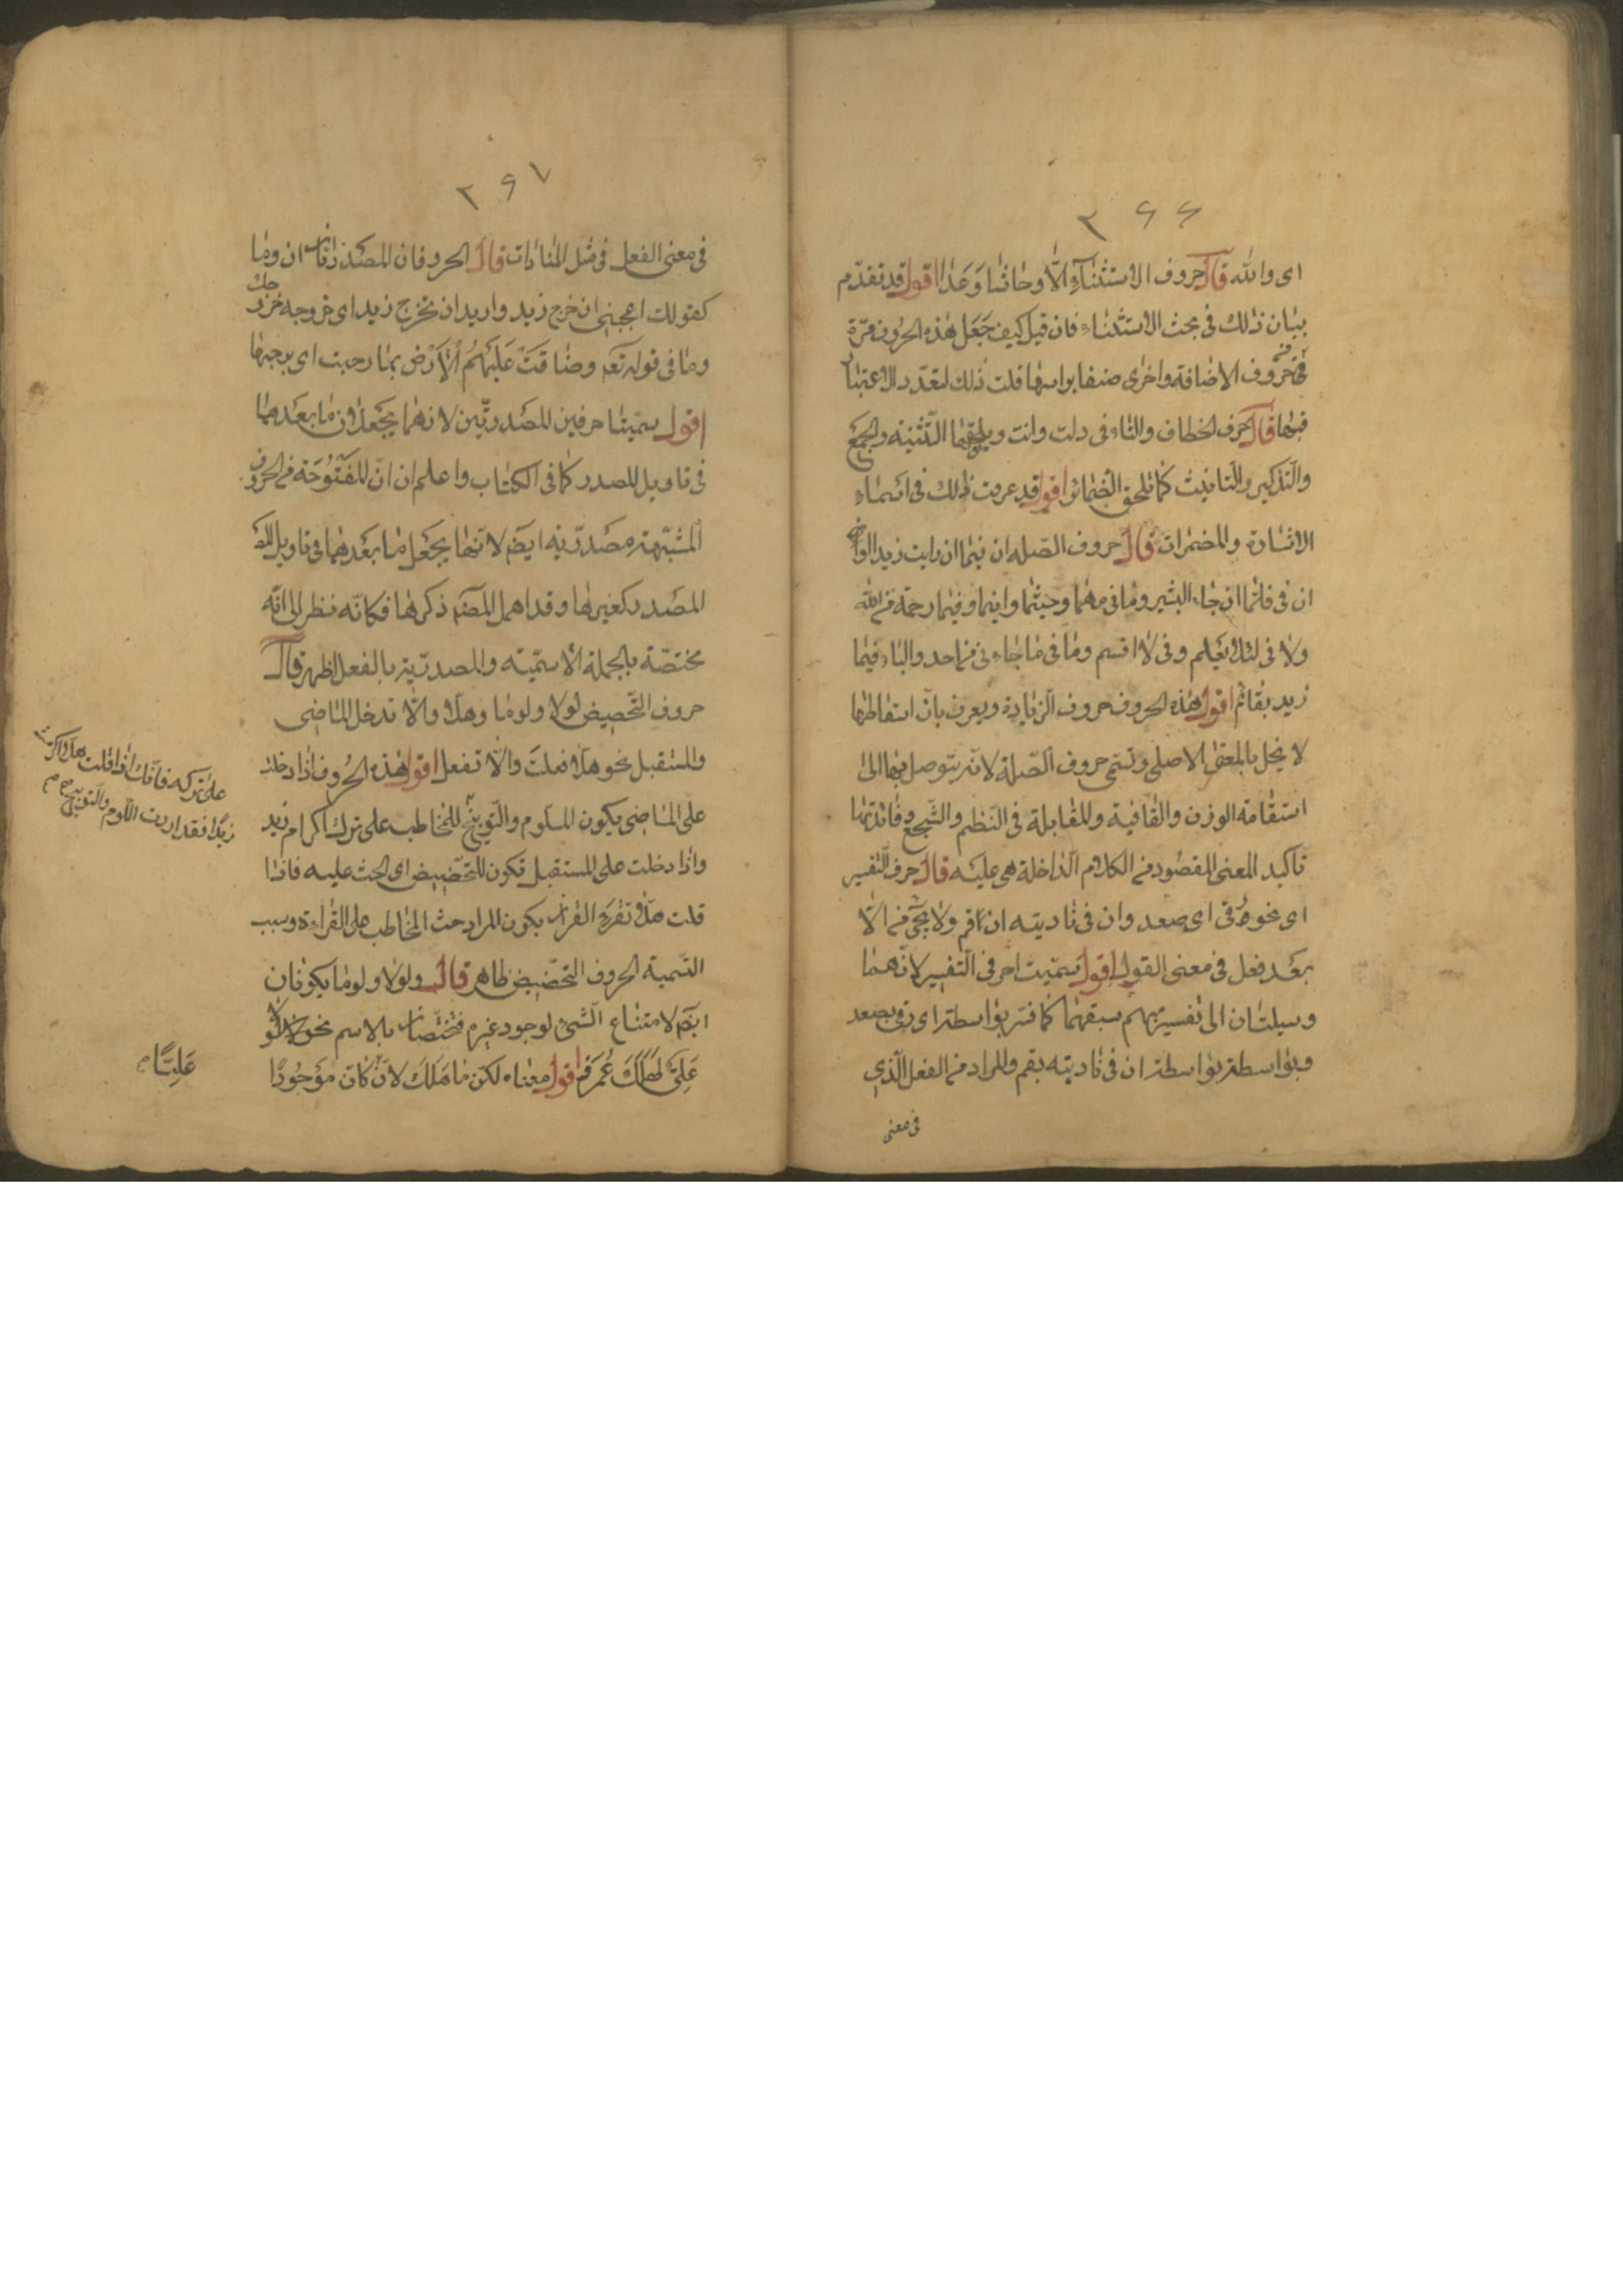 ٢٦٦
اى والله قال حروف الاستثناء الّا وحاشا وعدا اقول قد تقدّم
بيان ذلك فى بحث الاستثناء فان قيل كيف جعل هذه الحروف مرّة
من حروف الاضافة واخرى صنفا براسها قلت ذلك لتعدّد الاعتبار
فيها قال حرف الخطاب والتاء فى ذلك وانت ويلحقهما التّثنية والجمع
والتّذكير والتّانيث كما تلحق الضمائر اقول قد عرفت ذلك فى اسماء
الاشارة والمضمرات قال حروف الصّله ان فى ما ان رايت زيدا
ان فى فلمّا ان جاء البشير وما فى مهما وحيثما واينما وفيما رحمة من الله
ولا فى لئلا يعلم وفى لا اقسم وما فى ما جاءنى من احد والباء فيما
زيد بقائم اقول هذه الحروف حروف الزيادة ويعرف بانّ اسقاطها
لا يخل بالمعنى الاصلى وتسمّى حروف الصّلة لانّه يتوصل بها الى
استقامة الوزن والقافية والمقابلة فى النّظم والسّجع وفائدتها
تاكيد المعنى المقصود من الكلام الّذى الداخلة هى عليه قال حرف التّفسير
اى نحو رقى اى صعد وان فى ناديته ان قم ولا يجئ من الّا
بعد فعل فى معنى القول اقول سمّيت احرفى التّفسير لانّهما
وسيلتان الى تفسير مبهم سبقهما كما فسّر بواسطة اى رقى بصعد
وبواسطة ان فى ناديته بقم والمراد من الفعل الّذى
فى معنى
٢٦٧
فى معنى الفعل فى مثل المنادات قال الحرفان المصدريّان ان وما
كقولك اعجبنى ان خرج زيد واريد ان تخرج زيد اى خروجه خروجك
وما فى قوله تعه وضاقت عليهم الأرض بما رحبت اى برحبها
اقول سمّيتا حرفين المصدريّين لانهما يجعلان ما بعدهما
فى تاويل المصدر كما فى الكتاب واعلم ان انّ المفتوحة من الحروف
المشبّهة مصدريّة ايضه لانّها يجعل ما بعدها فى تاويل
المصدر كغيرها وقد اهمل المصنّف ذكرها فكانّه نظر الى انّه
مختصّة بالجملة الاسميّة والمصدريّة بالفعل اظهر قال
حروف التّحضيض لولا ولوما وهلّا والّا تدخل الماضى
والمستقبل نحو هلّا فعلت والّا تفعل اقول هذه الحروف اذا دخلت
على الماضى يكون للّوم والتّوبيخ للمخاطب على ترك اكرام زيد
واذا دخلت على المستقبل تكون للتّحضيض اى الحث عليه فاذا
قلت هلّا تقرء القران يكون المراد حث المخاطب على القراءة وسبب
التّسمية الحروف التّحضيض ظاهر قال ولولا ولوما يكونان
ايضه لامتناع الشّئ لوجود غيره فتختصّان بالاسم نحو لولا
علىّ لهلك عمر اقول معناه لكن ما هلك لانّ كان موجودًا
على تركه فانّك اذا قلت هلّا اكرمت
زيدًا فقد اردت اللّوم والتّوبيخ
عليًّا